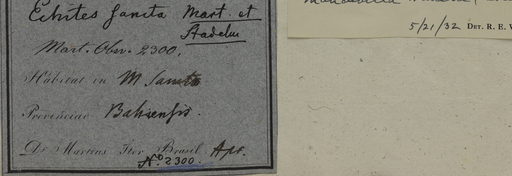 Echites sancta Mart et
Stadelm
Mart. Obs. 2300.
Habitat in M Sancto
Provinciae Bahiensis.
Dr. Martius Iter Brasil. Apr.
No. 2300.
Mandevilla
5/21/32 DET. R. E. W